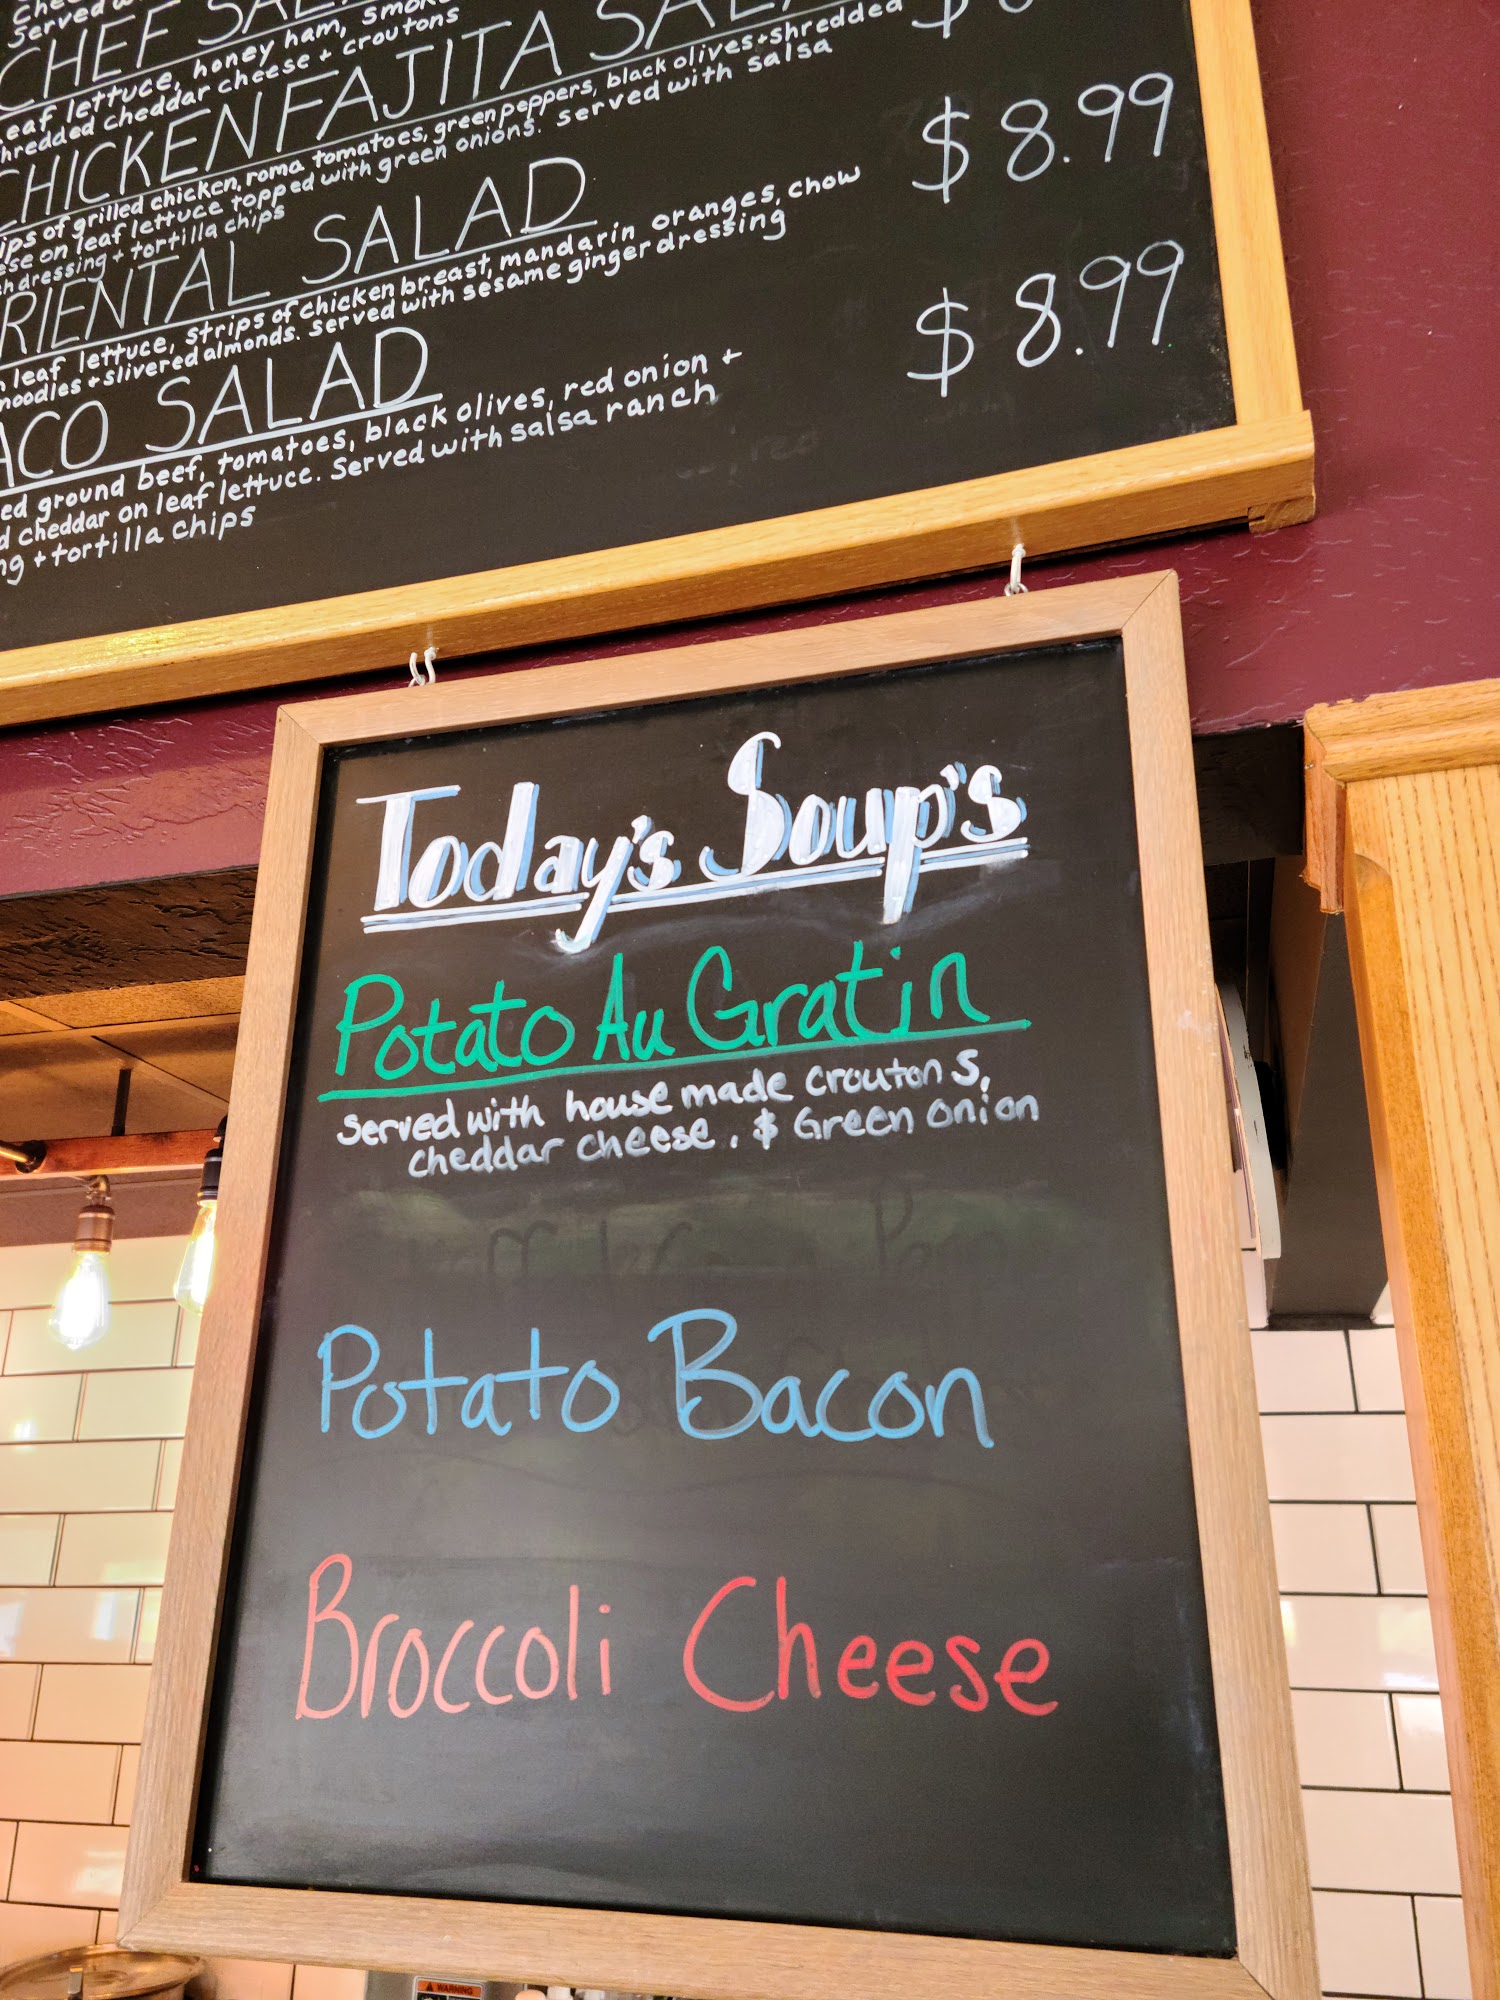 Served
CHEF SAL
leaf lettuce, honey ham, smok
shredded cheddar cheese + croutons
CHICKEN FAJITA SALA
ips of grilled chicken, roma tomatoes, green peppers, black olives + shredded
ese on leaf lettuce topped with green onions. served with salsa
h dressing + tortilla chips
RIENTAL SALAD
$8.99
leaf lettuce, strips of chicken breast, mandarin oranges, chow
noodles + slivered almonds. served with sesame ginger dressing
ACO SALAD
$8.99
ed ground beef, tomatoes, black olives, red onion +
d cheddar on leaf lettuce. Served with salsa ranch
ng + tortilla chips
Today's Soup's
Potato Au Gratin
Served with house made croutons,
cheddar cheese, & Green onion
Potato Bacon
Broccoli Cheese
WARNING